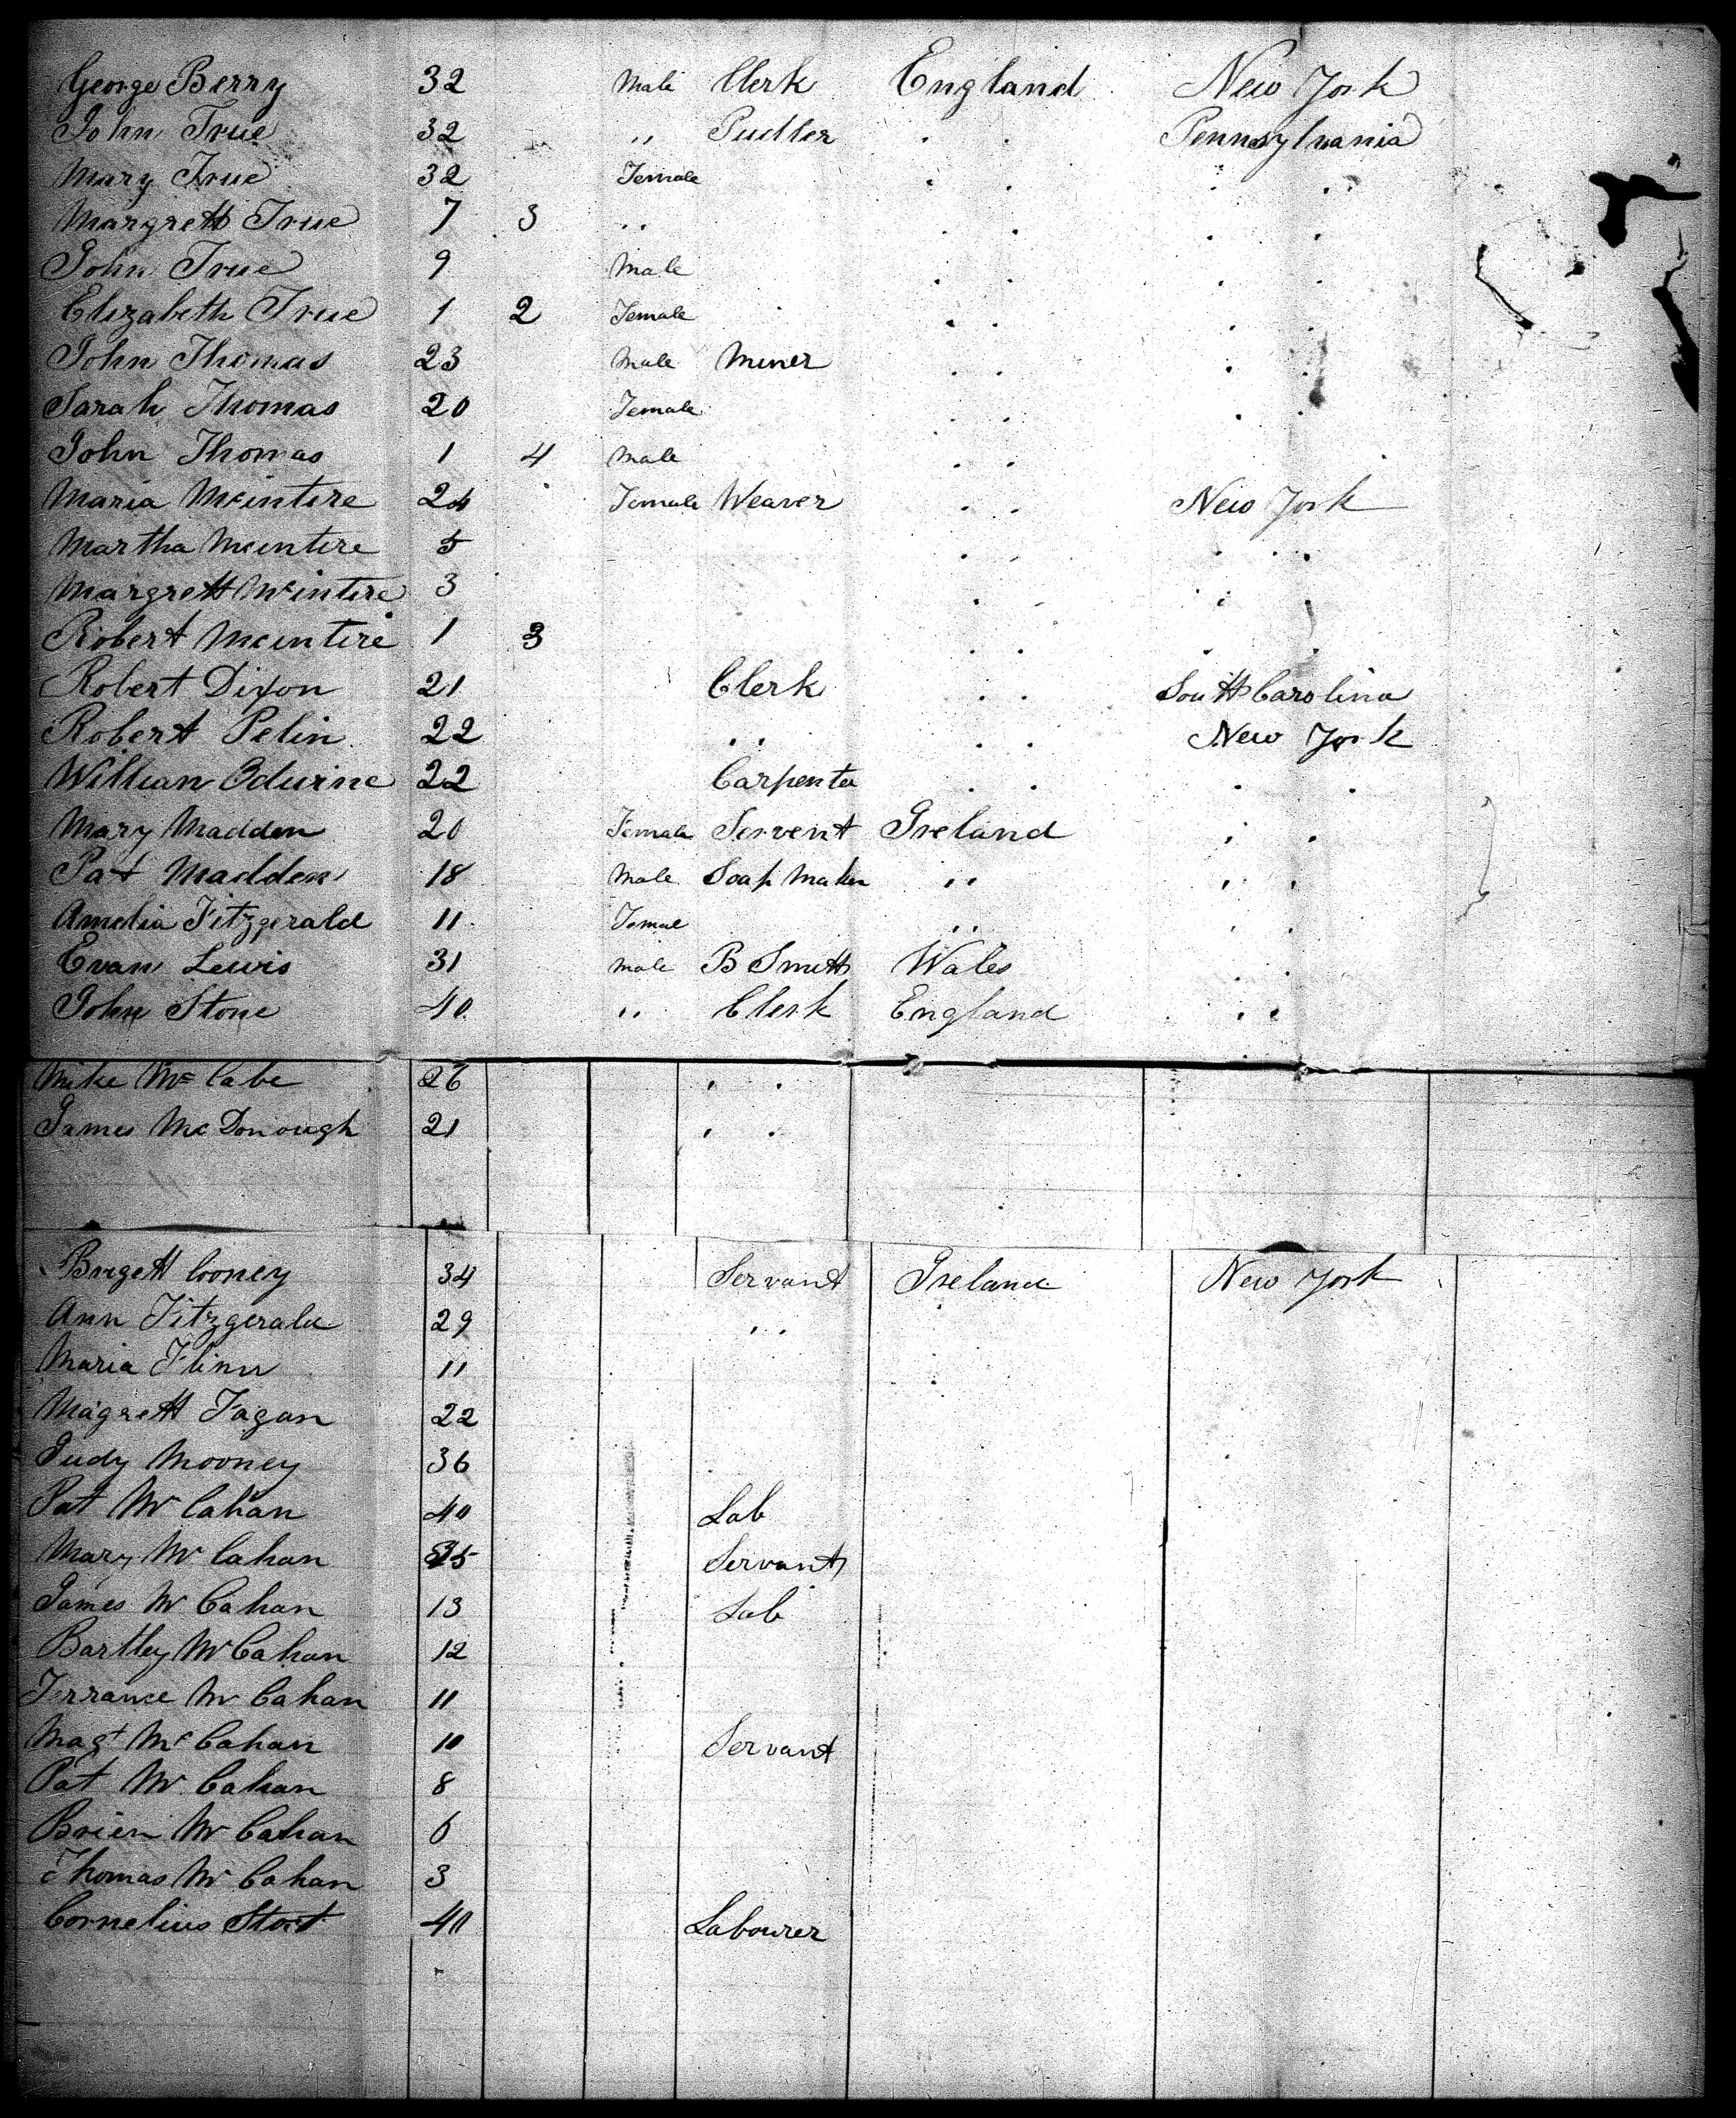 George Berry 32 Male Clerk England New York
John True 32 " Pudler " " Pennsylvania
Mary True 32 Female " " " "
Margrett True 7 3 " " " " "
John True 9 Male " " " "
Elizabeth True 1 2 Female " " " "
John Thomas 23 Male Miner " " " "
Sarah Thomas 20 Female " " " "
John Thomas 1 4 Male " "
Maria McIntire 24 Female Weaver " " New York
Martha McIntire 5 " " " "
Margrett McIntire 3 " " " "
Robert McIntire 1 3 " " " "
Robert Dixon 21 Clerk " " South Carolina
Robert Pelin 22 " " " " New York
William 22 Carpenter " " " "
Mary Madden 20 Female Servent Ireland " "
Pat Madden 18 Male Soap Maker " " "
Amelia Fitzgerald 11 Femal " " "
Evan Lewis 31 Male B Smith Wales " "
John Stone 40 " Clerk England " "
Mike McCabe 26 " "
James McDonough 21 " "
Birgett Cooney 34 Servant Ireland New York
Ann Fitzgerald 29 " "
Maria Flinn 11
Magrett Fagan 22
Judy Mooney 36
Pat McCahan 40 Lab
Mary McCahan 35 Servant
James McCahan 13 Lab
Bartley McCahan 12
Terrance McCahan 11
Magt McCahan 10 Servant
Pat McCahan 8
Brien McCahan 6
Thomas McCahan 3
Cornelius Stort 40 Labourer